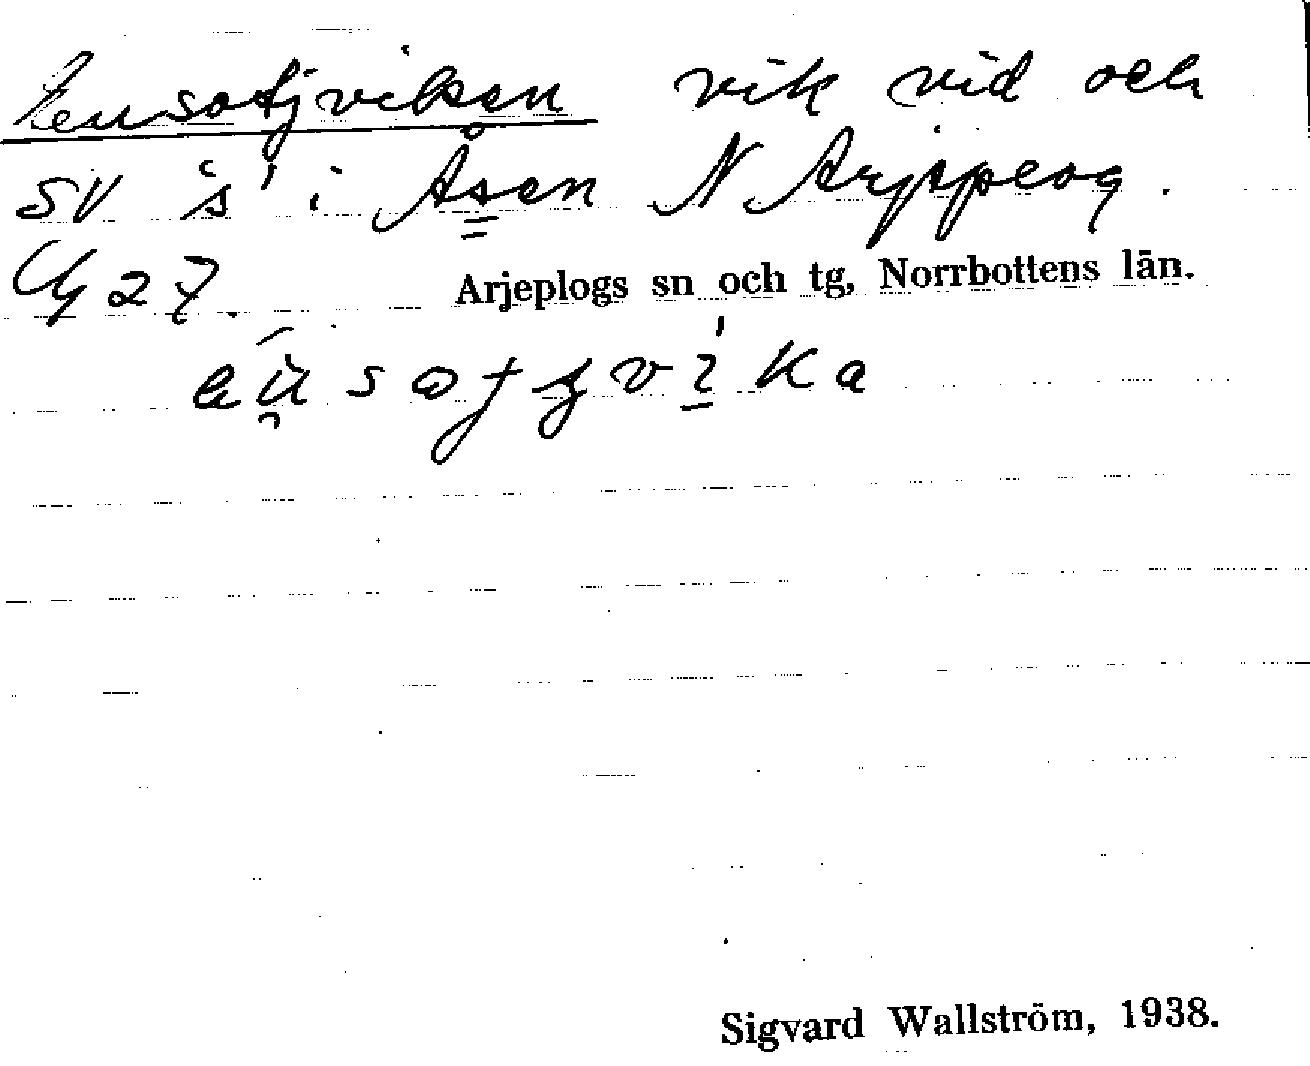 Eusatjviken vik vid och
SV 's' i Åsen N Arjeplog.
27.
Arjeplogs sn och tg, Norrbottens län.
Sigvard Wallström, 1938.